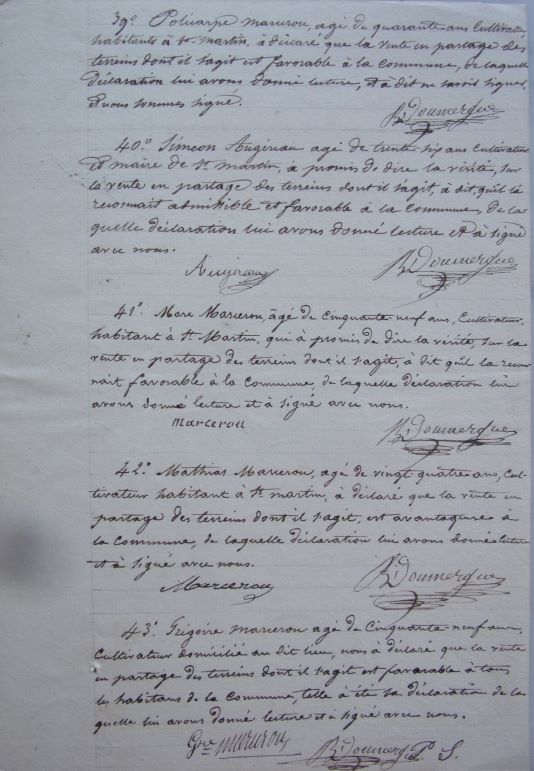 39.° Policarpe Marcerou, agé de quarante ans Cultivateur
habitants à St. Martin, à déclaré que la vente en partage des
terreins dont il s'agit est favorable à la Commune, de laquelle
déclaration lui avons donné lecture, et à dit ne savoir signer,
Et nous sommes signé.
Bi Doumergue
40.° Simeon Augereau agé de trente six ans Cultivateur
Et maire de St. Martin, à promis de dire la vérité, sur
la vente en partage des terreins dont il s'agit, à dit, qu'il la
reconnait admissible et favorable à la Commune, de la
quelle déclaration lui avons donné lecture et à signé
avec nous.
Augereau
Bi Doumergue
41.° Marc Marcerou, âgé de cinquante neuf ans, Cultivateur,
habitant à St. Martin, qui à promis de dire la vérité, sur la
vente en partage des terreins dont il s'agit, à dit qu'il la recon
nait favorable à la Commune, de laquelle déclaration lui
avons donné lecture et à signé avec nous.
Marcerou
Bi Doumergue
42.° Mathias Marcerou, agé de vingt quatre ans, Cul-
tivateur habitant à St. Martin, à déclaré que la vente en
partage des terreins dont il s'agit, est avantageuse à
la Commune, de laquelle déclaration lui avons donné lecture
et à signé avec nous.
Marcerou
Bi Doumergue
43.° Grégoire Marcerou agé de Cinquante neuf ans,
Cultivateur domicilié au dit lieu, nous à déclaré que la vente
en partage des terreins dont il s'agit est favorable à tous
les habitans de la Commune, telle à été sa déclaration de la
quelle lui avons donné lecture et à signé avec nous.
Gre Marcerou
Bi Doumerg P. S.